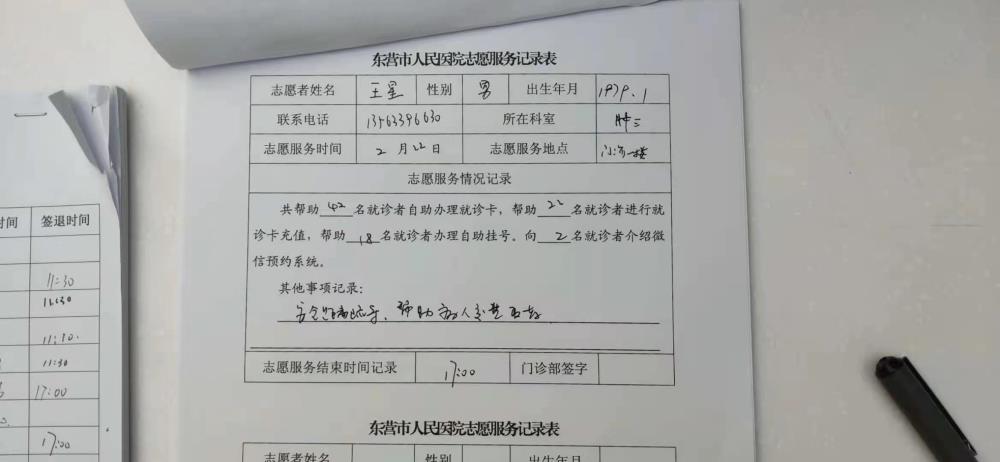 东营市人民医院志愿服务记录表
志愿者姓名 王星 性别 男 出生年月 1979.1
联系电话 13563396630 所在科室
志愿服务时间 2月22日 志愿服务地点 一楼
志愿服务情况记录
共帮助42名就诊者自助办理就诊卡，帮助22名就诊者进行就
诊卡充值，帮助18名就诊者办理自助挂号。向2名就诊者介绍微
信预约系统。
其他事项记录：
帮助
志愿服务结束时间记录 17:00 门诊部签字
东营市人民医院志愿服务记录表
志愿者姓名 性别 出生年月
时间 签退时间
11:30
11:30
11:30
11:30
17:00
17:00